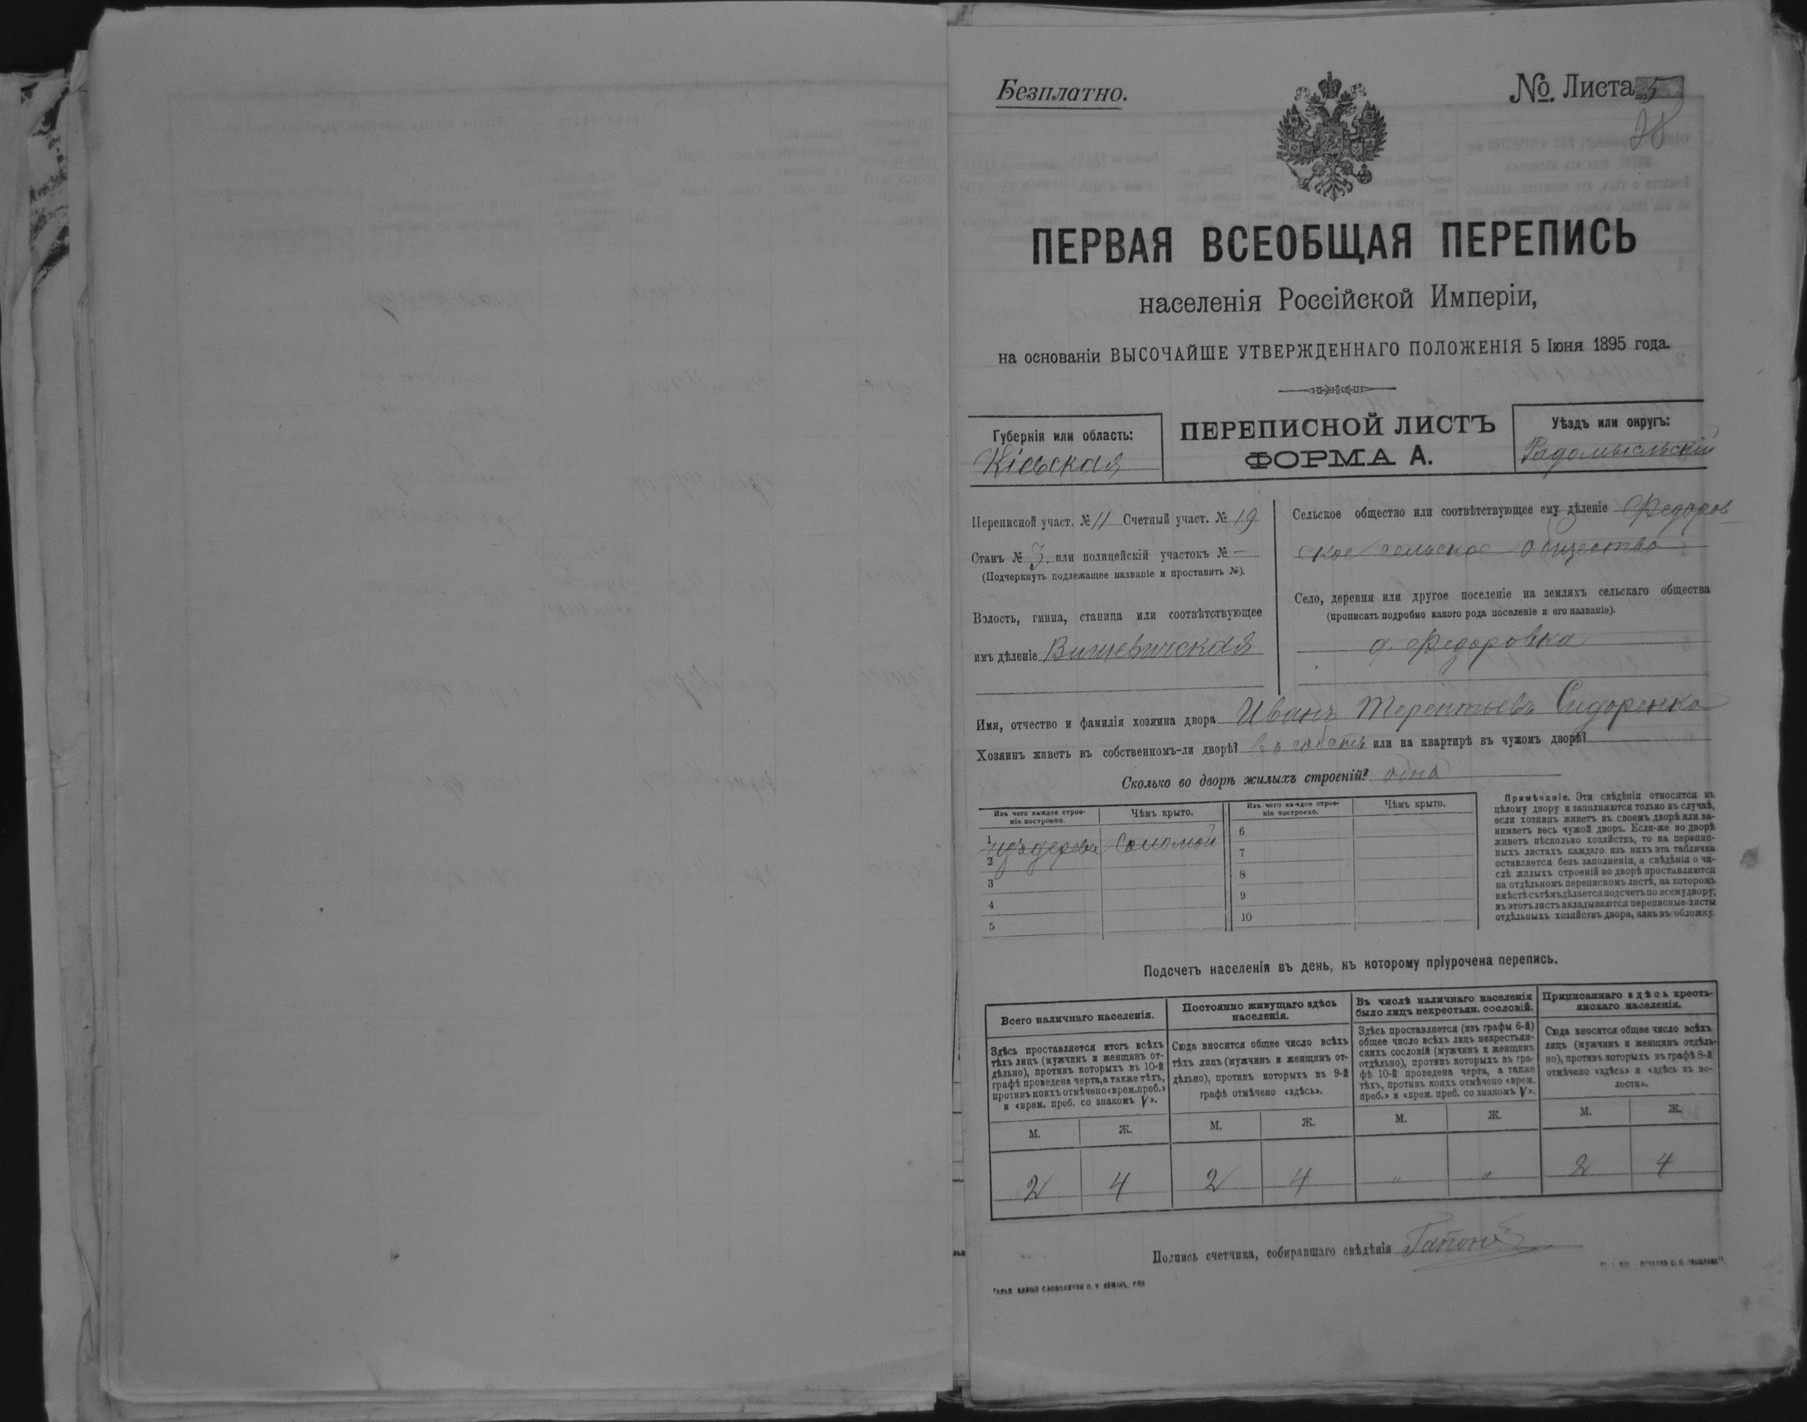 Безплатно.
№. Листа 5
28
ПЕРВАЯ ВСЕОБЩАЯ ПЕРЕПИСЬ
населенія Россійской Имперіи,
на основаніи ВЫСОЧАЙШЕ УТВЕРЖДЕННАГО ПОЛОЖЕНІЯ 5 Іюня 1895 года.
Губернія или область:
Кіевская
ПЕРЕПИСНОЙ ЛИСТЪ
ФОРМА А.
Уѣздъ или округъ:
Радомысльскій
Переписной участ. № 11 Счетный участ. № 19
Станъ № 3. или полицейскій участокъ № —
(Подчеркнуть подлежащее названіе и проставить №).
Волость, гмина, станица или соотвѣтствующее
имъ дѣленіе Вишевичская
Сельское общество или соотвѣтствующее ему дѣленіе Федоров
ское сельское общество
Село, деревня или другое поселеніе на земляхъ сельскаго общества
(прописать подробно какого рода поселеніе и его названіе).
д. Федоровка
Имя, отчество и фамилія хозяина двора Иванъ Терентьевъ Сидоренко
Хозяинъ живетъ въ собственномъ-ли дворѣ? въ собств или на квартирѣ въ чужомъ дворѣ?
Сколько во дворѣ жилыхъ строеній? одна
Изъ чего каждое строе-
ніе построено.
Чѣмъ крыто.
1 изъ дерева Соломой
2
3
4
5
Изъ чего каждое строе-
ніе построено.
Чѣмъ крыто.
6
7
8
9
10
Примѣчаніе. Эти свѣдѣнія относятся къ
цѣлому двору и заполняются только въ случаѣ,
если хозяинъ живетъ въ своемъ дворѣ или за-
нимаетъ весь чужой дворъ. Если-же во дворѣ
живетъ нѣсколько хозяйствъ, то на перепис-
ныхъ листахъ каждаго изъ нихъ эта табличка
оставляется безъ заполненія, а свѣдѣнія о чи-
слѣ жилыхъ строеній во дворѣ проставляются
на отдѣльномъ переписномъ листѣ, на которомъ
вмѣстѣ съ тѣмъ дѣлается подсчетъ по всему двору;
въ этотъ листъ вкладываются переписные листы
отдѣльныхъ хозяйствъ двора, какъ въ обложку.
Подсчетъ населенія въ день, къ которому пріурочена перепись.
Всего наличнаго населенія.
Здѣсь проставляется итогъ всѣхъ
тѣхъ лицъ (мужчинъ и женщинъ от-
дѣльно), противъ которыхъ въ 10-й
графѣ проведена черта, а также тѣхъ,
противъ коихъ отмѣчено «врем. преб.»
и «врем. преб. со знакомъ V».
М. Ж.
2 4
Постоянно живущаго здѣсь
населенія.
Сюда вносится общее число всѣхъ
тѣхъ лицъ (мужчинъ и женщинъ от-
дѣльно), противъ которыхъ въ 9-й
графѣ отмѣчено «здѣсь».
М. Ж.
2 4
Въ числѣ наличнаго населенія
было лицъ некрестьян. сословій.
Здѣсь проставляется (изъ графы 6-й)
общее число всѣхъ лицъ некрестьян-
скихъ сословій (мужчинъ и женщинъ
отдѣльно), противъ которыхъ въ гра-
фѣ 10-й проведена черта, а также
тѣхъ, противъ коихъ отмѣчено «врем.
преб.» и «врем. преб. со знакомъ V».
М. Ж.
" "
Приписаннаго здѣсь кресть-
янскаго населенія.
Сюда вносится общее число всѣхъ
лицъ (мужчинъ и женщинъ отдѣль-
но), противъ которыхъ въ графѣ 8-й
отмѣчено «здѣсь» и «здѣсь къ во-
лости».
М. Ж.
2 4
Подпись счетчика, собиравшаго свѣдѣнія